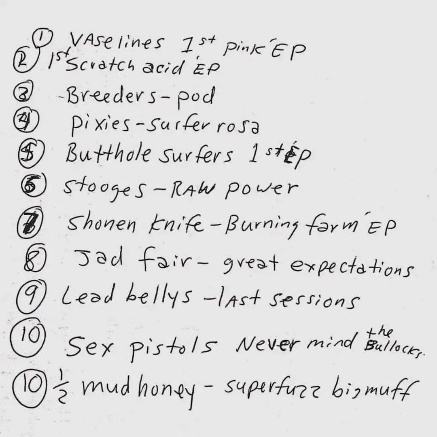 ① VASElines 1st pink EP
② 1st Scratch acid EP
③ -Breeders-pod
④ Pixies-surfer rosa
⑤ Butthole surfers 1st EP
⑥ Stooges-RAW power
⑦ shonen knife-Burning farm EP
⑧ Jad fair-great expectations
⑨ Lead bellys-lAst sessions
⑩ Sex pistols Never mind the Bullocks.
⑩ ½ mudhoney-superfuzz bigmuff